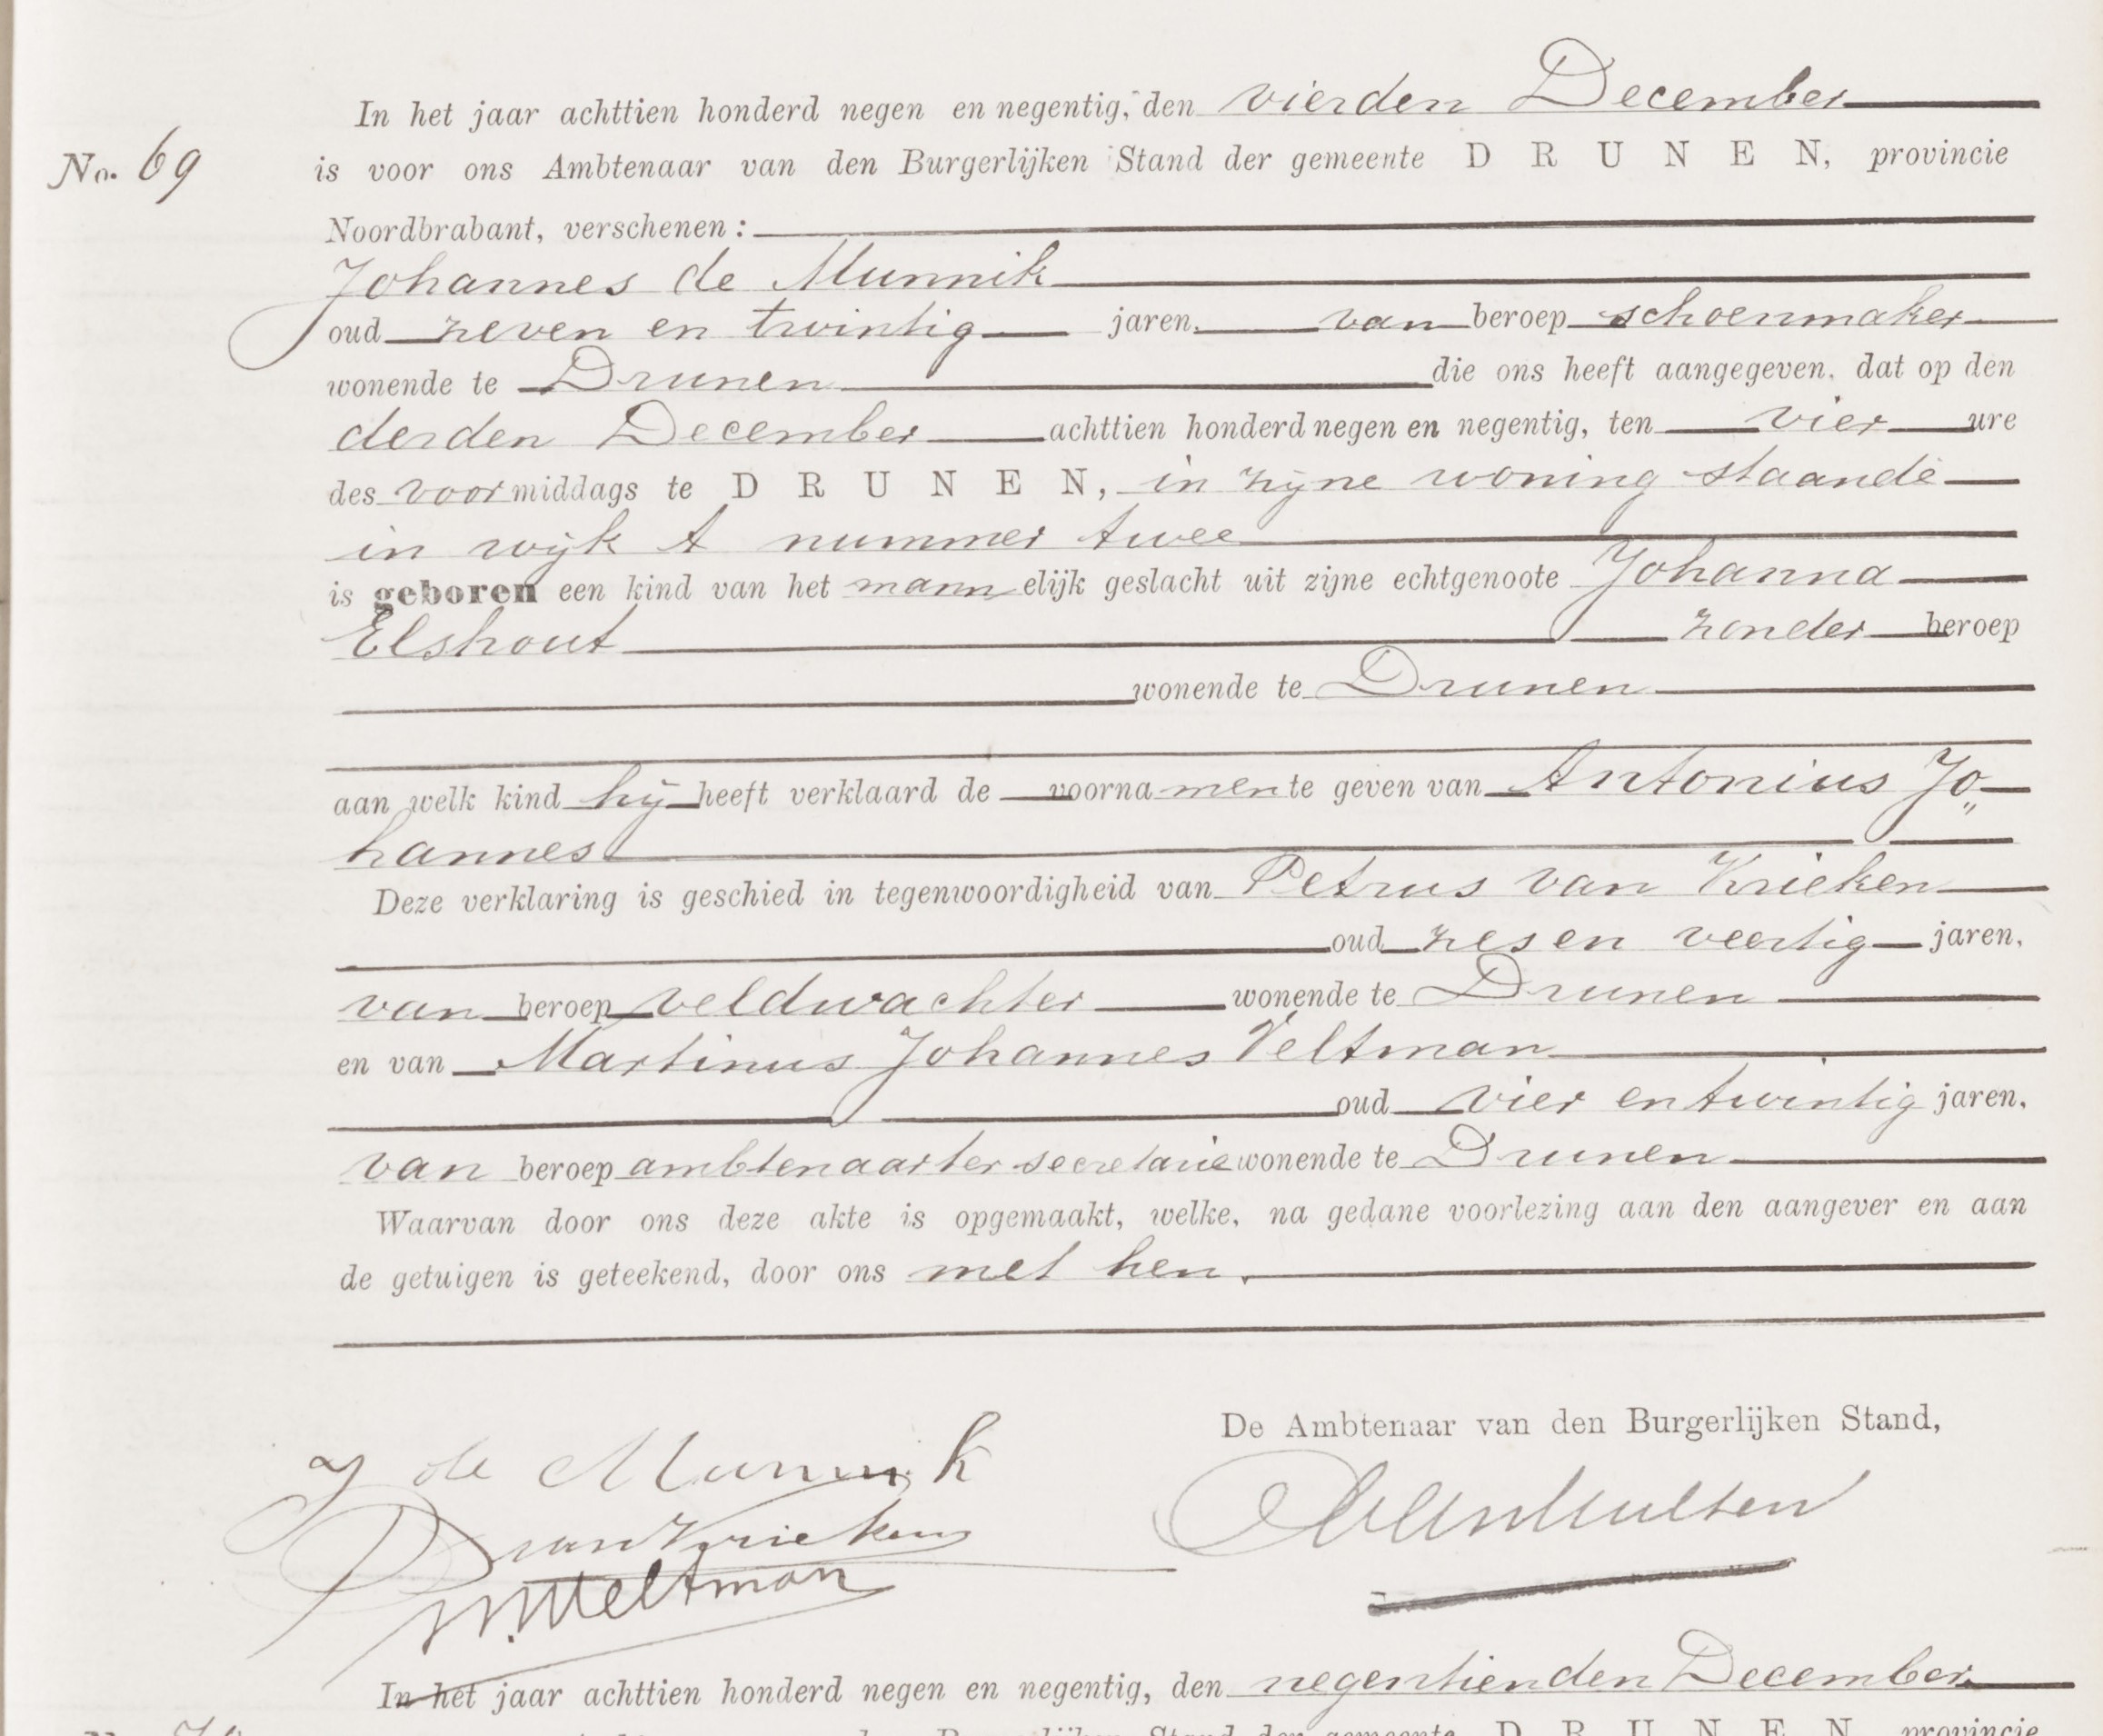 In het jaar achttien honderd negen en negentig, den vierden December
No. 69
is voor ons Ambtenaar van den Burgerlijken Stand der gemeente D R U N E N, provincie
Noordbrabant, verschenen :
Johannes de Munnik
oud zeven en twintig jaren, van beroep schoenmaker
wonende te Drunen die ons heeft aangegeven, dat op den
derden December achttien honderd negen en negentig, ten vier ure
des voormiddags te D R U N E N, in zijne woning staande
in wijk A nummer twee
is geboren een kind van het mannelijk geslacht uit zijne echtgenoote Johanna
Elshout zonder beroep
wonende te Drunen
aan welk kind hij heeft verklaard de voornamen te geven van Antonius Jo„
hannes
Deze verklaring is geschied in tegenwoordigheid van Petrus van Krieken
oud zes en veertig jaren,
van beroep veldwachter wonende te Drunen
en van Martinus Johannes Veltman
oud vier en twintig jaren,
van beroep ambtenaar ter secretarie wonende te Drunen
Waarvan door ons deze akte is opgemaakt, welke, na gedane voorlezing aan den aangever en aan
de getuigen is geteekend, door ons met hen.
De Ambtenaar van den Burgerlijken Stand,
J de Munnik
P van Krieken
MJVeltman
In het jaar achttien honderd negen en negentig, den negentienden December